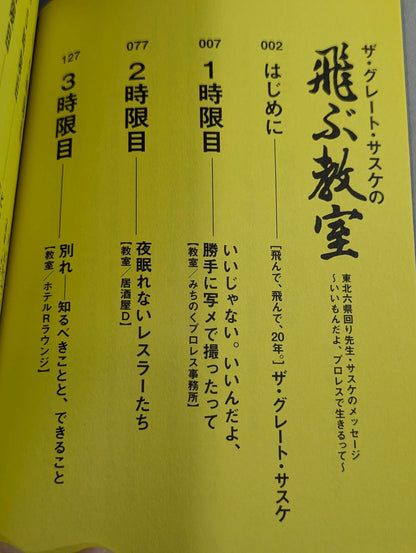 ザ・グレート・サスケの
飛ぶ教室
東北六県回り先生・サスケのメッセージ
〜いいもんだよ、プロレスで生きるって〜
002
はじめに
[飛んで、飛んで、20年。]ザ・グレート・サスケ
007
1時限目
いいじゃない。いいんだよ、
勝手に写メで撮ったって
【教室／みちのくプロレス事務所】
077
2時限目
夜眠れないレスラーたち
【教室／居酒屋D】
127
3時限目
別れ──知るべきことと、できること
【教室／ホテルRラウンジ】